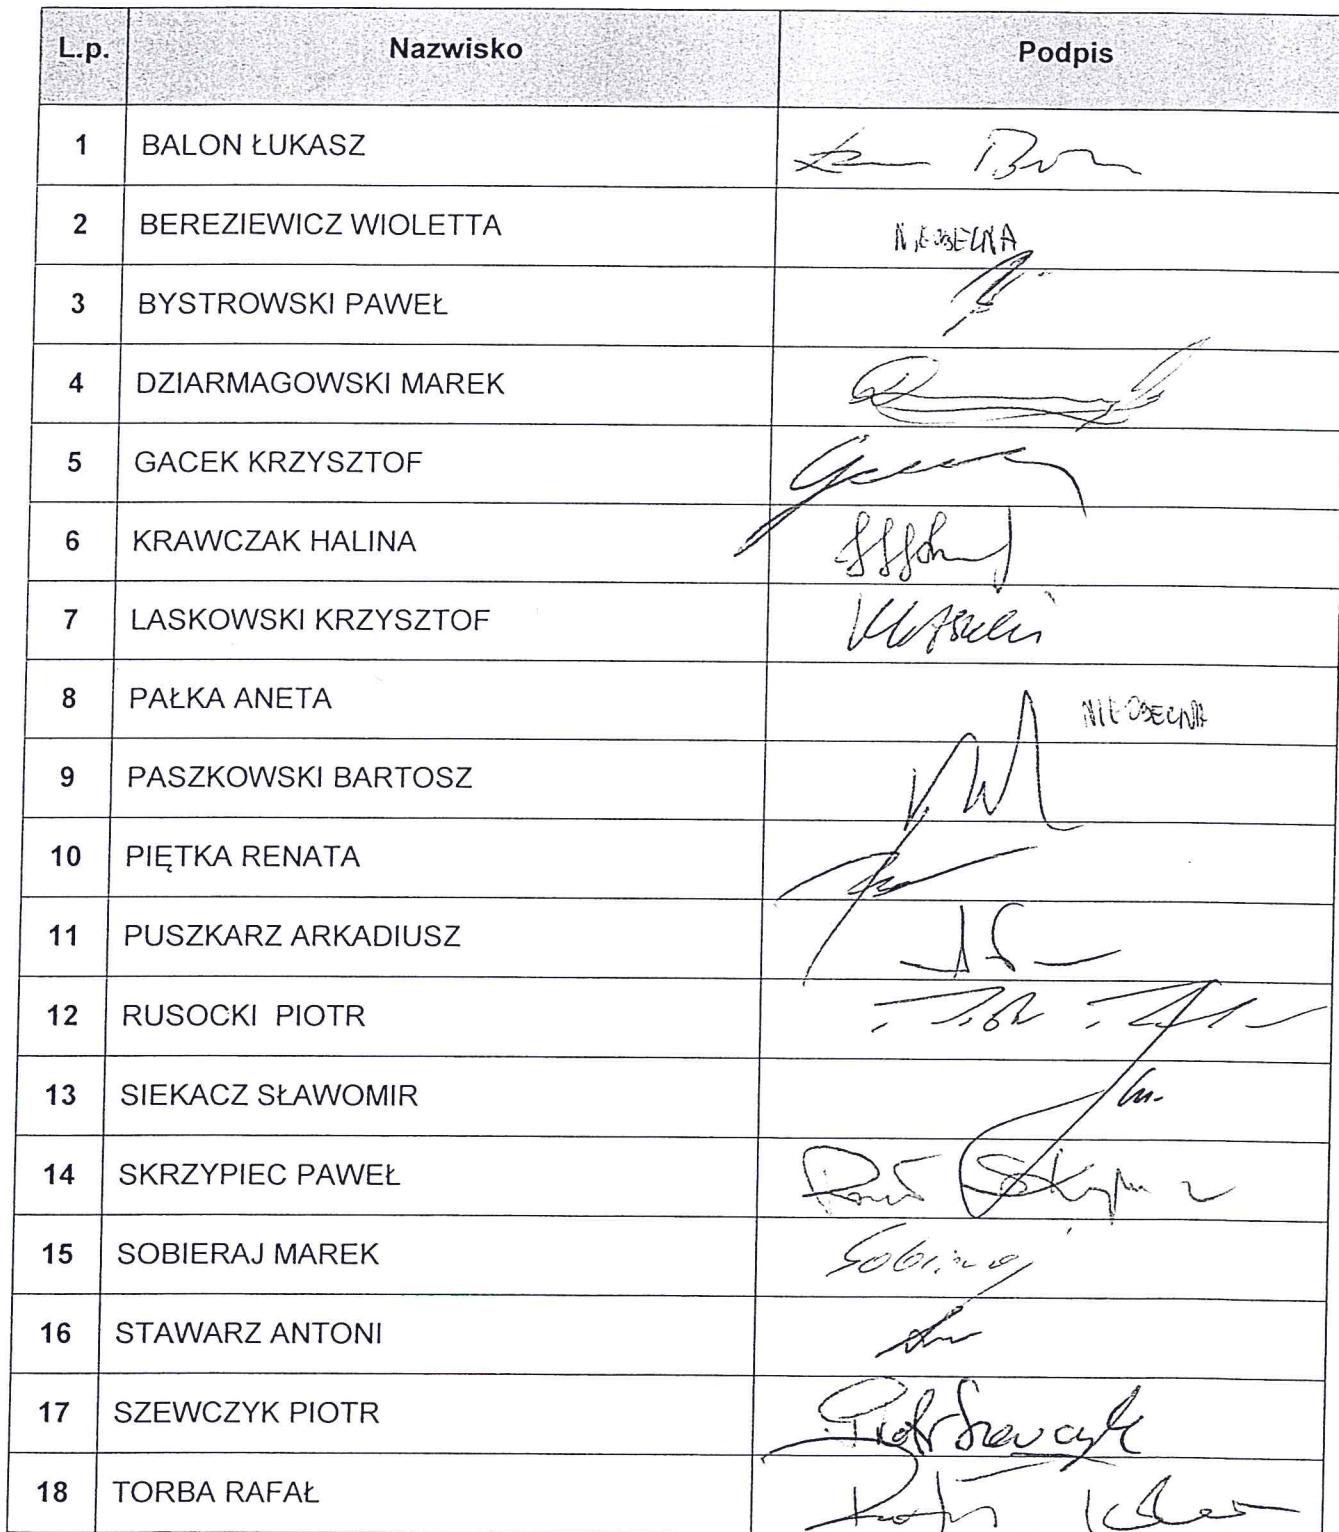 L.p. Nazwisko Podpis
1 BALON ŁUKASZ
2 BEREZIEWICZ WIOLETTA NIEOBECNA
3 BYSTROWSKI PAWEŁ
4 DZIARMAGOWSKI MAREK
5 GACEK KRZYSZTOF
6 KRAWCZAK HALINA
7 LASKOWSKI KRZYSZTOF
8 PAŁKA ANETA NIEOBECNA
9 PASZKOWSKI BARTOSZ
10 PIĘTKA RENATA
11 PUSZKARZ ARKADIUSZ
12 RUSOCKI PIOTR
13 SIEKACZ SŁAWOMIR
14 SKRZYPIEC PAWEŁ
15 SOBIERAJ MAREK Sobieraj
16 STAWARZ ANTONI
17 SZEWCZYK PIOTR Piotr Szewczyk
18 TORBA RAFAŁ